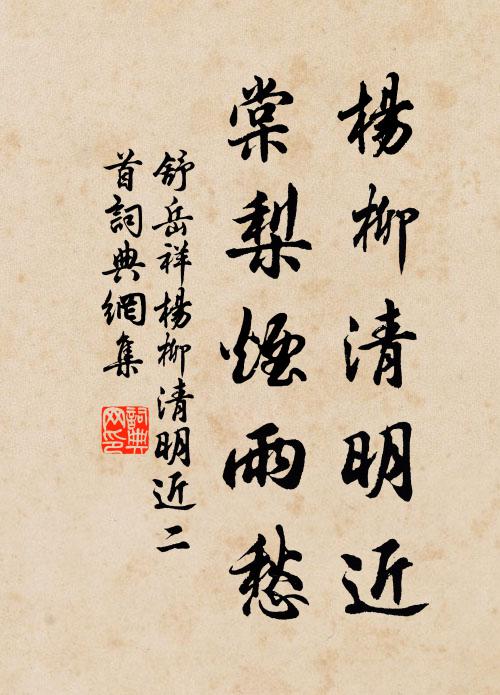 楊柳清明近
棠梨煙雨愁
舒岳祥楊柳清明近二
首詞典網集
詞典
网印